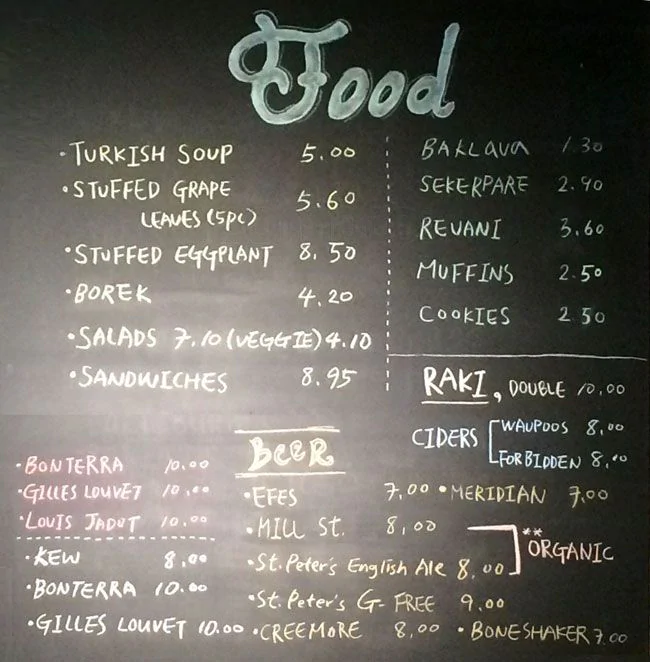 Food
• TURKISH SOUP 5.00
• STUFFED GRAPE
LEAVES (5PC) 5.60
• STUFFED EGGPLANT 8.50
• BOREK 4.20
• SALADS 7.10 (VEGGIE) 4.10
• SANDWICHES 8.95
BAKLAVA 1.30
SEKERPARE 2.90
REVANI 3.60
MUFFINS 2.50
COOKIES 2.50
RAKI, DOUBLE 10.00
CIDERS
WAUPOOS 8.00
FORBIDDEN 8.00
• BONTERRA 10.00
• GILLES LOUVET 10.00
• LOUIS JADOT 10.00
• KEW 8.00
• BONTERRA 10.00
• GILLES LOUVET 10.00
BEER
• EFES 7.00 • MERIDIAN 7.00
• MILL ST. 8,00
• St. Peter's English Ale 8.00
** ORGANIC
• St. Peter's G-FREE 9.00
• CREEMORE 8,00 • BONESHAKER 7.00